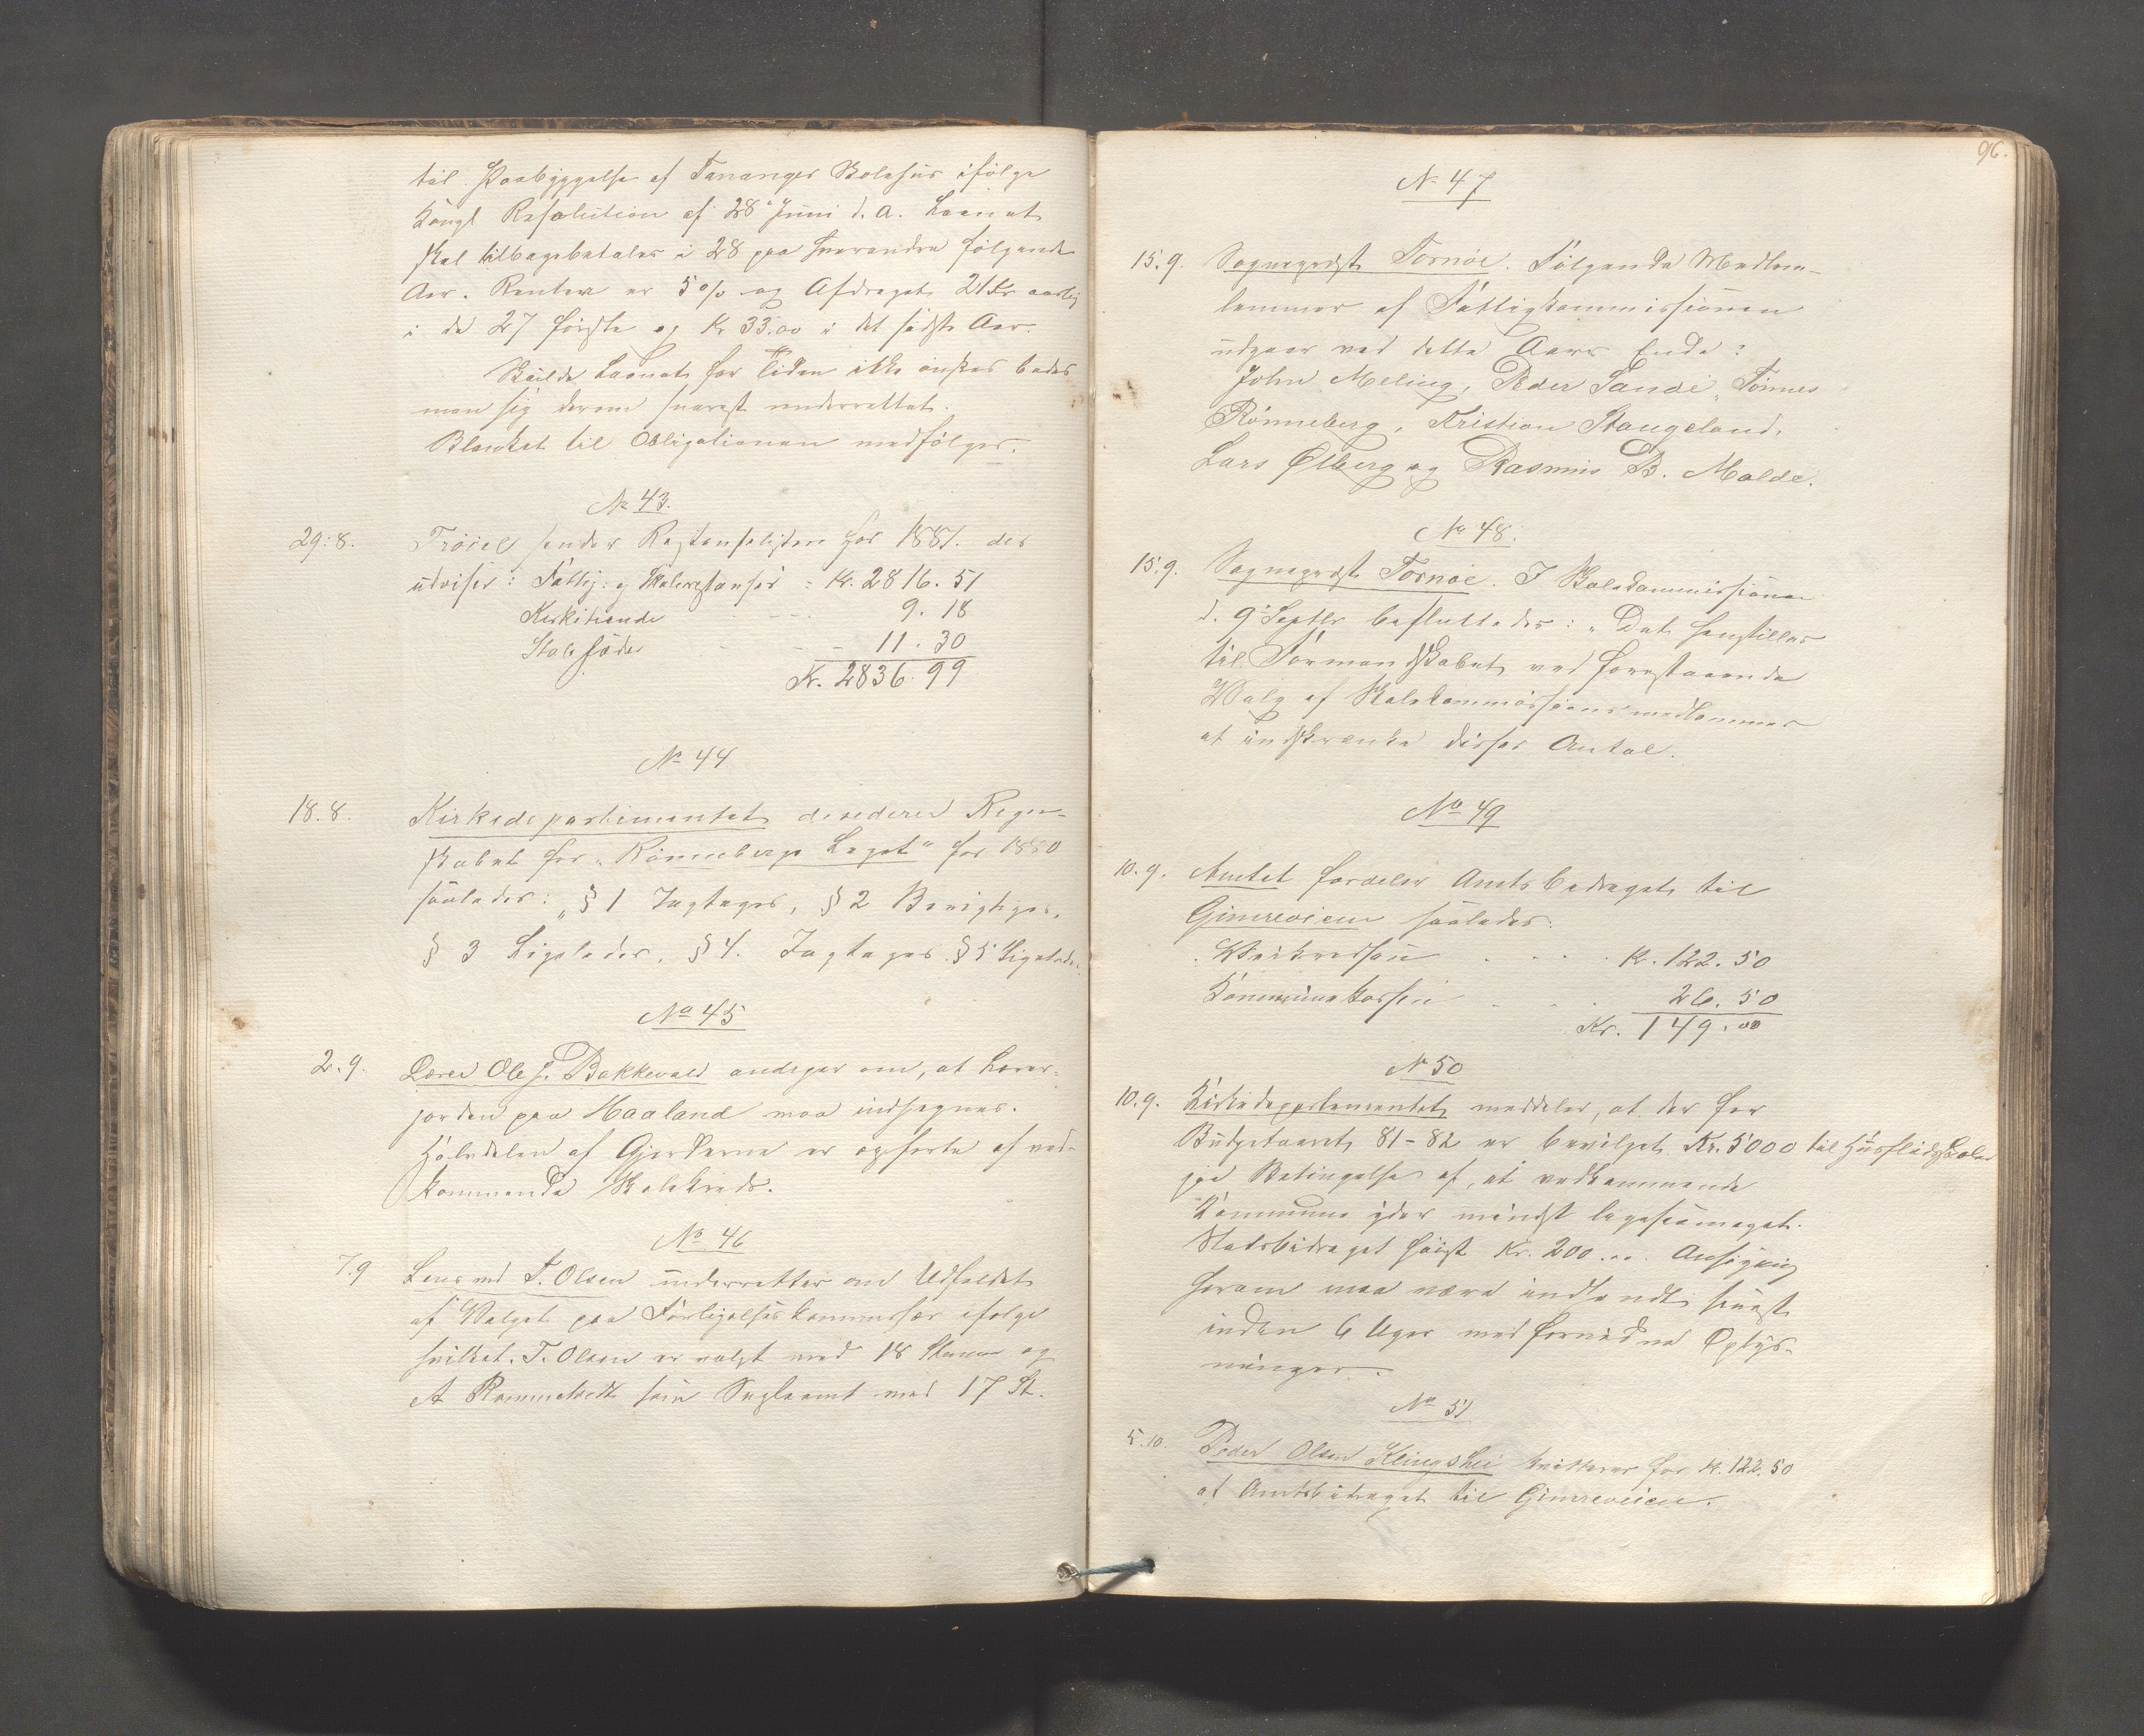 til Paabyggelse af Tananger Skolehus ifølge
Kongl Resolution af 28de Juni d. A. Laanet
skal tilbagebetales i 28 paa hverandre følgende
Aar. Renten er 5 % og Afdraget 21 Kr aarlig
i de 27 første og Kr 33.00 i det sidste Aar.
Skulde Laanet for Tiden ikke ønskes bedes
man sig derom snarest underrettet.
Blanket til Obligationen medfølger.
No 43.
29.8. sender Restanselisten for 1881. der
udviser: Fattig- og Skolerestanser : Kr. 2816.51
Kirketiende - - - 9.18
- - - 11.30
Kr. 2836.99
No 44
18.8. Kirkedepartementet deciderer Regn-
skabet for "Rønnebergs Legat" for 1880
saaledes: "§ 1 Iagtages, § 2 Berigtiges,
§ 3 Ligeledes, § 4. Iagtages § 5 Ligeledes.
No 45
2.9. Lærer Ole J. Bakkevold andrager om, at Lærer-
jorden paa Haaland maa indhegnes.
Halvdelen af Gjerderne er opførte af ved-
kommende Skolekreds.
No 46
7.9 Lensmd T. Olsen underretter om Udfaldet
af Valget paa Forligelseskommissær ifølge
hvilket T. Olsen er valgt med 18 Stemmer og
A Rommetvedt som Supleant med 17 St.
96.
No 47
15.9. Sogneprest Tornøe. Følgende Medlem-
lemmer af Fattigkommissionen
udgaar ved dette Aars Ende:
John Meling, Peder Sande, Tønnes
Rønneberg, Kristian Stangeland,
Lars Ølberg og Rasmus B. Molde.
No 48.
15.9. Sogneprest Tornøe. I Skolekommissionen
d. 9de Septbr besluttedes: "Det henstilles
til Formandskabet ved forestaaende
Valg af Skolekommissionsmedlemmer
at indskrænke disses Antal.
No 49
10.9. Amtet fordeler Amtsbidraget til
Gimreveien saaledes:
- - - Kr. 122.50
Kommunekassen - - - 26.50
Kr. 149.00
No 50
10.9. Kirkedepartementet meddeler, at der for
Budgetaaret 81-82 er bevilget Kr. 5000 til Husflidsskoler
paa Betingelse af, at vedkommende
Kommune yder mindst ligesaameget.
Statsbidraget høist Kr. 200... Ansøgning
herom maa være indsendt senest
inden 6 Uger med fornødne Oplys-
ninger.
No 51
5.10. Peder Olsen Klingshei kvitterer for Kr. 122.50
af Amtsbidraget til Gimreveien.